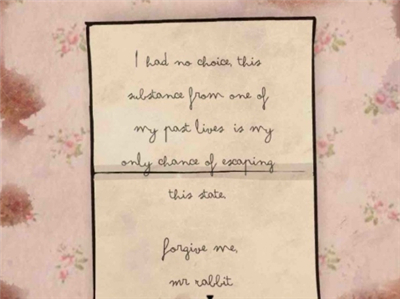 I had no choice, this
substance from one of
my past lives is my
only chance of escaping
this state.
forgive me,
mr rabbit